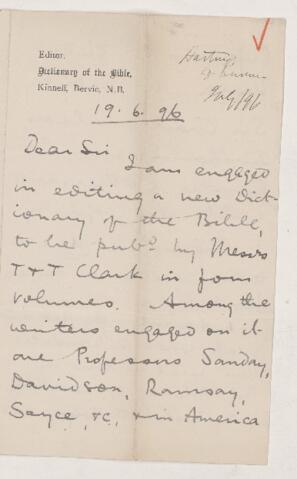 Editor.
Dictionary of the Bible,
Kinneff, Bervie, N.B.
Hastings
July/96
19. 6. 96
Dear Sir
I am engaged
in editing a new Dict-
ionary of the Bible,
to be pubd by Messrs
T & T Clark in four
volumes. Among the
writers engaged on it
are Professors Sanday,
Davidson, Ramsay,
Sayce, &c, & in America